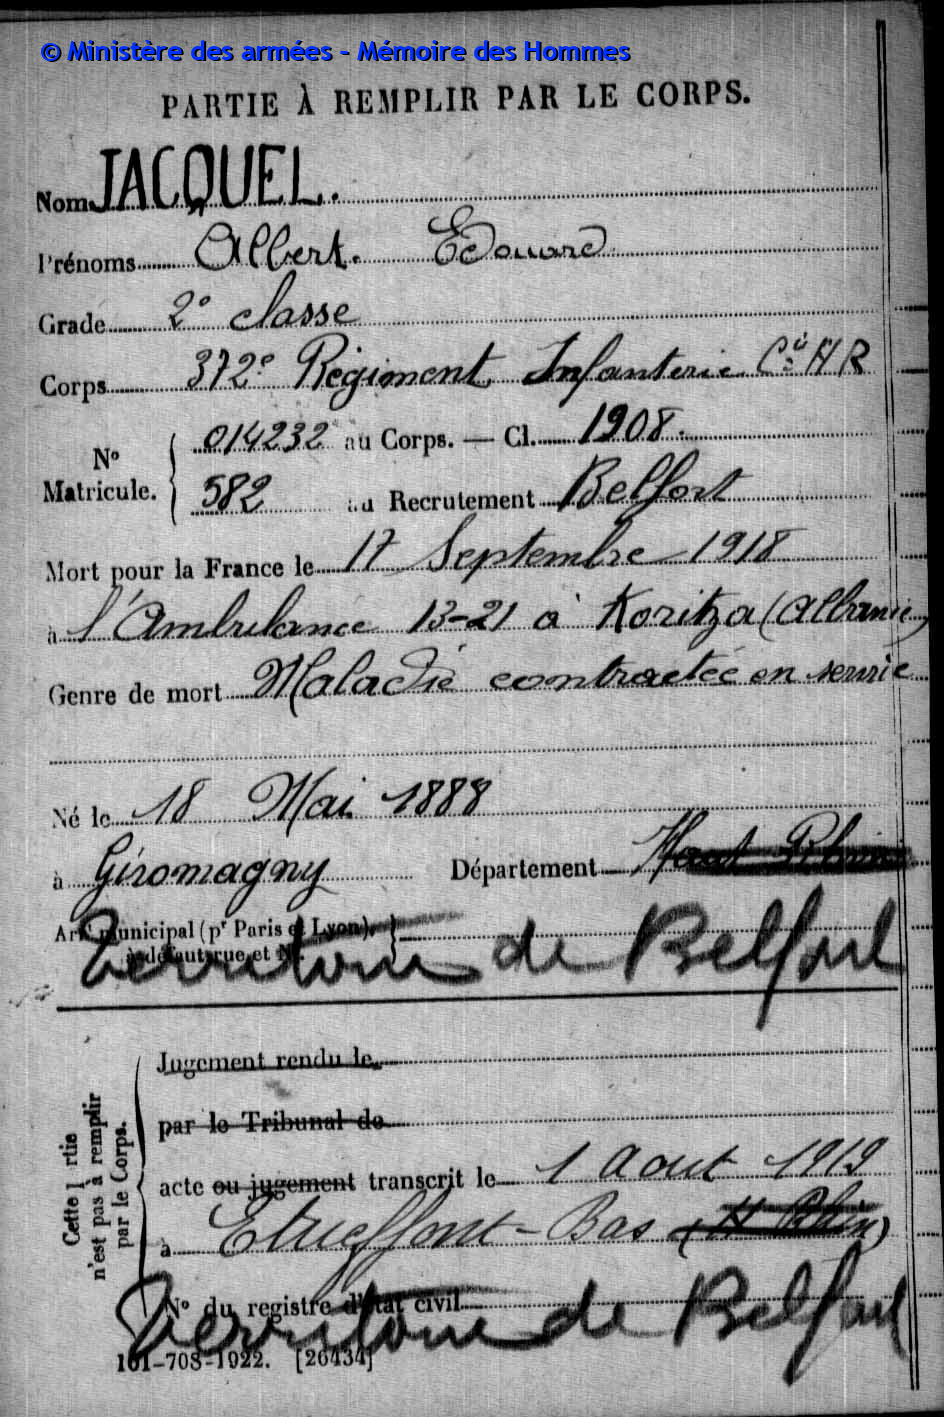 © Ministère des armées - Mémoire des Hommes
PARTIE À REMPLIR PAR LE CORPS.
Nom JACQUEL.
Prénoms Albert. Edouard
Grade 2e classe
Corps 372e Régiment Infanterie Cie H R
No Matricule. 014232 au Corps. — Cl. 1908.
582 au Recrutement Belfort
Mort pour la France le 17 Septembre 1918
à l'Ambulance 13-21 à Koritza (Albanie)
Genre de mort Maladie contractée en service
Né le 18 Mai 1888
à Giromagny Département Haut Rhin
Arrt municipal (pr Paris et Lyon),
à défaut rue et No.
Territoire de Belfort
Cette partie n'est pas à remplir par le Corps.
Jugement rendu le
par le Tribunal de
acte ou jugement transcrit le 1 Aout 1919
à Etueffont-Bas (H Rhin)
No du registre d'état civil
Territoire de Belfort
101-708-1922. [26434]